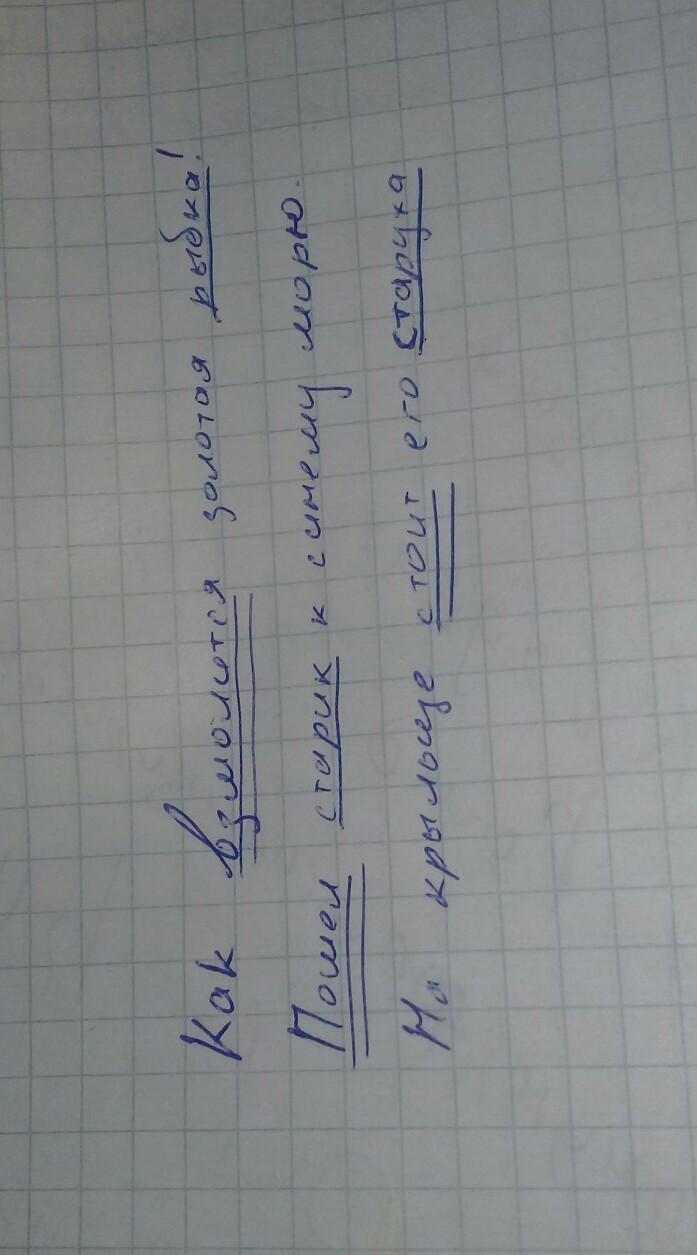 Как взмолится золотая рыбка!
Пошел старик к синему морю.
На крыльце стоит его старуха